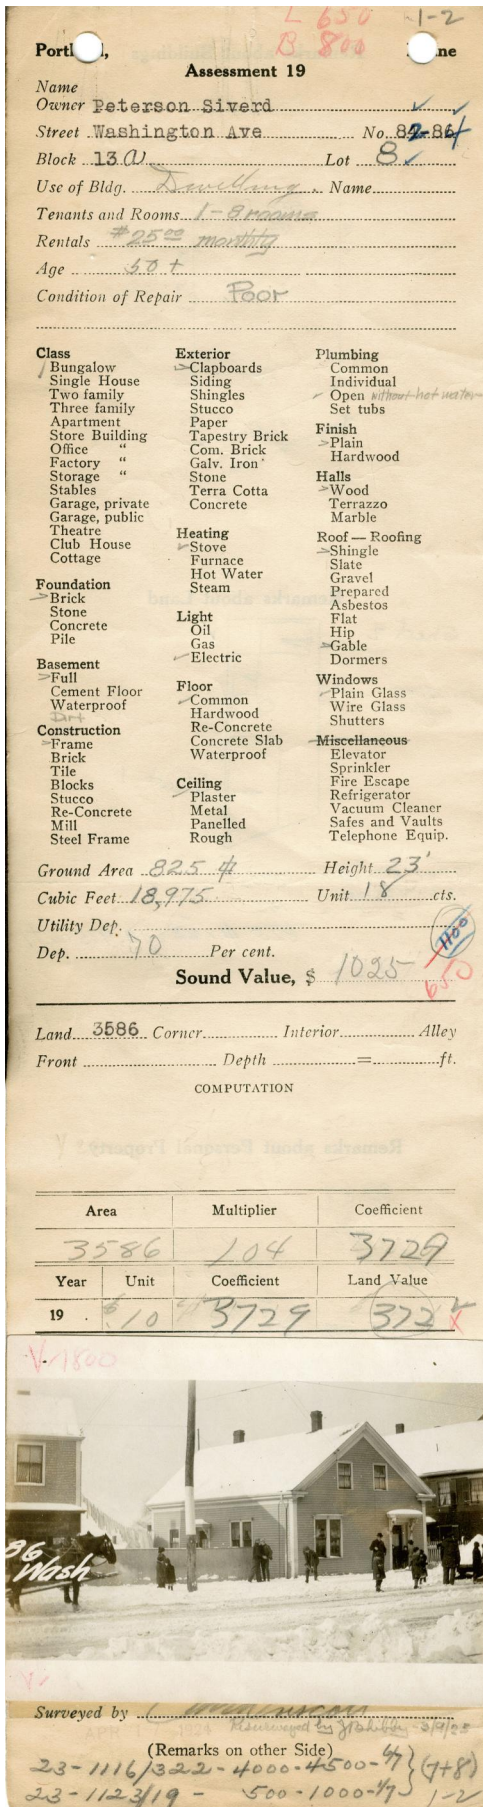 L 650 1-2
B 800
Portl , ne
Assessment 19
Name
Owner Peterson Siverd
Street Washington Ave No. 82-84
Block 13A Lot 8
Use of Bldg. Dwelling Name
Tenants and Rooms 1-8 rooms
Rentals $25.00 monthly
Age 50+
Condition of Repair Poor
Class
Bungalow
Single House
Two family
Three family
Apartment
Store Building
Office "
Factory "
Storage "
Stables
Garage, private
Garage, public
Theatre
Club House
Cottage
Foundation
Brick
Stone
Concrete
Pile
Basement
Full
Cement Floor
Waterproof
Dirt
Construction
Frame
Brick
Tile
Blocks
Stucco
Re-Concrete
Mill
Steel Frame
Exterior
Clapboards
Siding
Shingles
Stucco
Paper
Tapestry Brick
Com. Brick
Galv. Iron
Stone
Terra Cotta
Concrete
Heating
Stove
Furnace
Hot Water
Steam
Light
Oil
Gas
Electric
Floor
Common
Hardwood
Re-Concrete
Concrete Slab
Waterproof
Ceiling
Plaster
Metal
Panelled
Rough
Plumbing
Common
Individual
Open without hot water
Set tubs
Finish
Plain
Hardwood
Halls
Wood
Terrazzo
Marble
Roof — Roofing
Shingle
Slate
Gravel
Prepared
Asbestos
Flat
Hip
Gable
Dormers
Windows
Plain Glass
Wire Glass
Shutters
Miscellaneous
Elevator
Sprinkler
Fire Escape
Refrigerator
Vacuum Cleaner
Safes and Vaults
Telephone Equip.
Ground Area 825 Height 23'
Cubic Feet 18,975 Unit 18 cts.
Utility Dep.
Dep. 70 Per cent. 1100
Sound Value, $ 1025 650
Land 3586 Corner Interior Alley
Front Depth = ft.
COMPUTATION
Area Multiplier Coefficient
3586 104 3729
Year Unit Coefficient Land Value
19 $.10 3729 372
V-1800
86
Wash
Surveyed by
Resurveyed by 3/9/25
(Remarks on other Side)
23-1116/322-4000-4500-6/7 (7+8)
23-1123/19- 500-1000-1/7 1-2